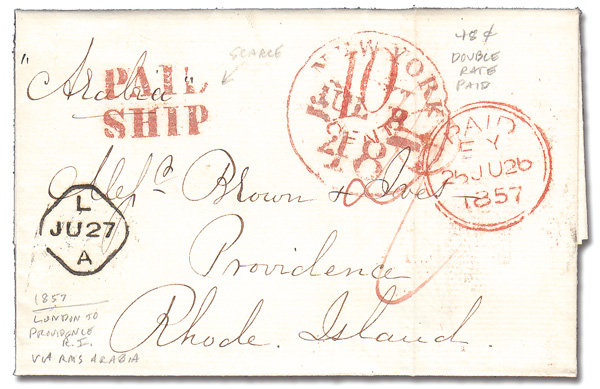 "Arabia"
PAID
SHIP
SCARCE
NEW YORK
10
48¢
DOUBLE
RATE
PAID
PAID
EY
26 JU 26
1857
L
JU27
A
Mess^rs Brown & Ives
Providence
Rhode. Island.
1857
LONDON TO
PROVIDENCE
R.I.
VIA RMS ARABIA